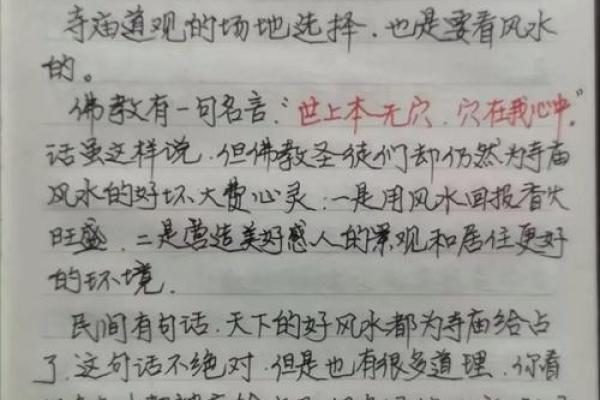 寺庙道观的场地选择，也是要看风水
的。
佛教有一句名言："世上本无穴，穴在我心中。"
话虽这样说，但佛教圣徒们却仍然为寺庙
风水的好坏大费心灵：一是用风水回报香火
旺盛，二是营造美好感人的景观和居住更好
的环境。
民间有句话，天下的好风水都为寺庙给占
了，这句话不绝对，但是也有很多道理，你看